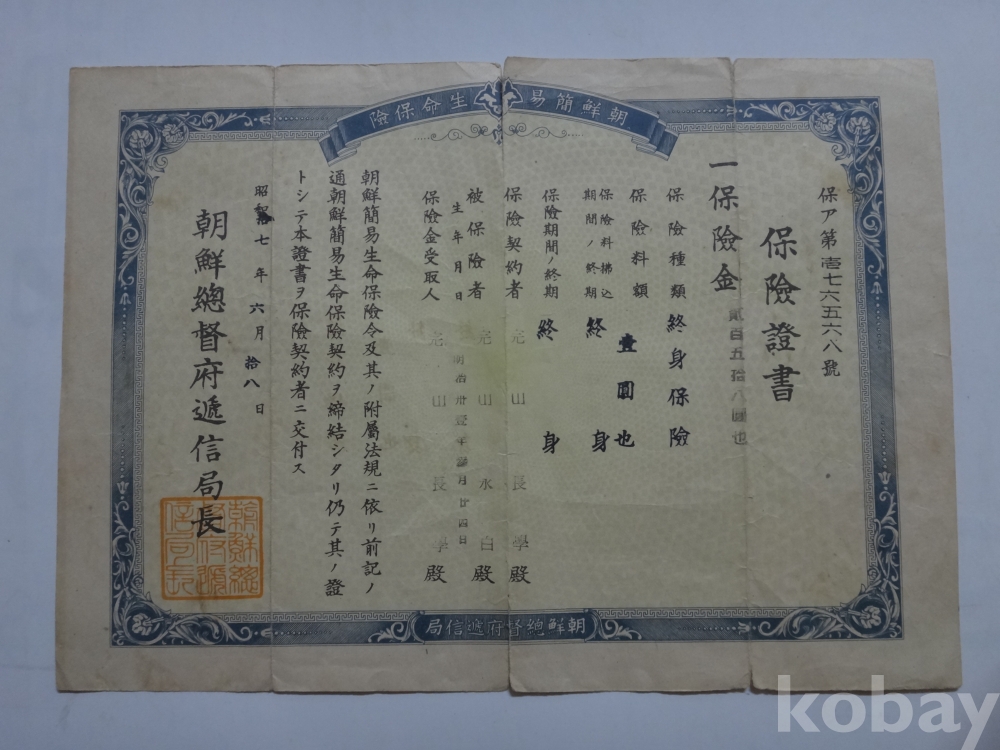 朝鮮簡易生命保險
保ア第壱七六五六八號
保險證書
一保險金 貳百五拾八圓也
保險種類 終身保險
保險料額 壹圓也
保險料拂込期間ノ終期 終身
保險期間ノ終期 終身
保險契約者 完山長學殿
被保險者 完山永白殿
生年月日 明治卅壹年參月廿四日
保險金受取人 完山長學殿
朝鮮簡易生命保險令及其ノ附屬法規ニ依リ前記ノ
通朝鮮簡易生命保險契約ヲ締結シタリ仍テ其ノ證
トシテ本證書ヲ保險契約者ニ交付ス
昭和拾七年六月拾八日
朝鮮總督府遞信局長
朝鮮總督府遞信局
kobay